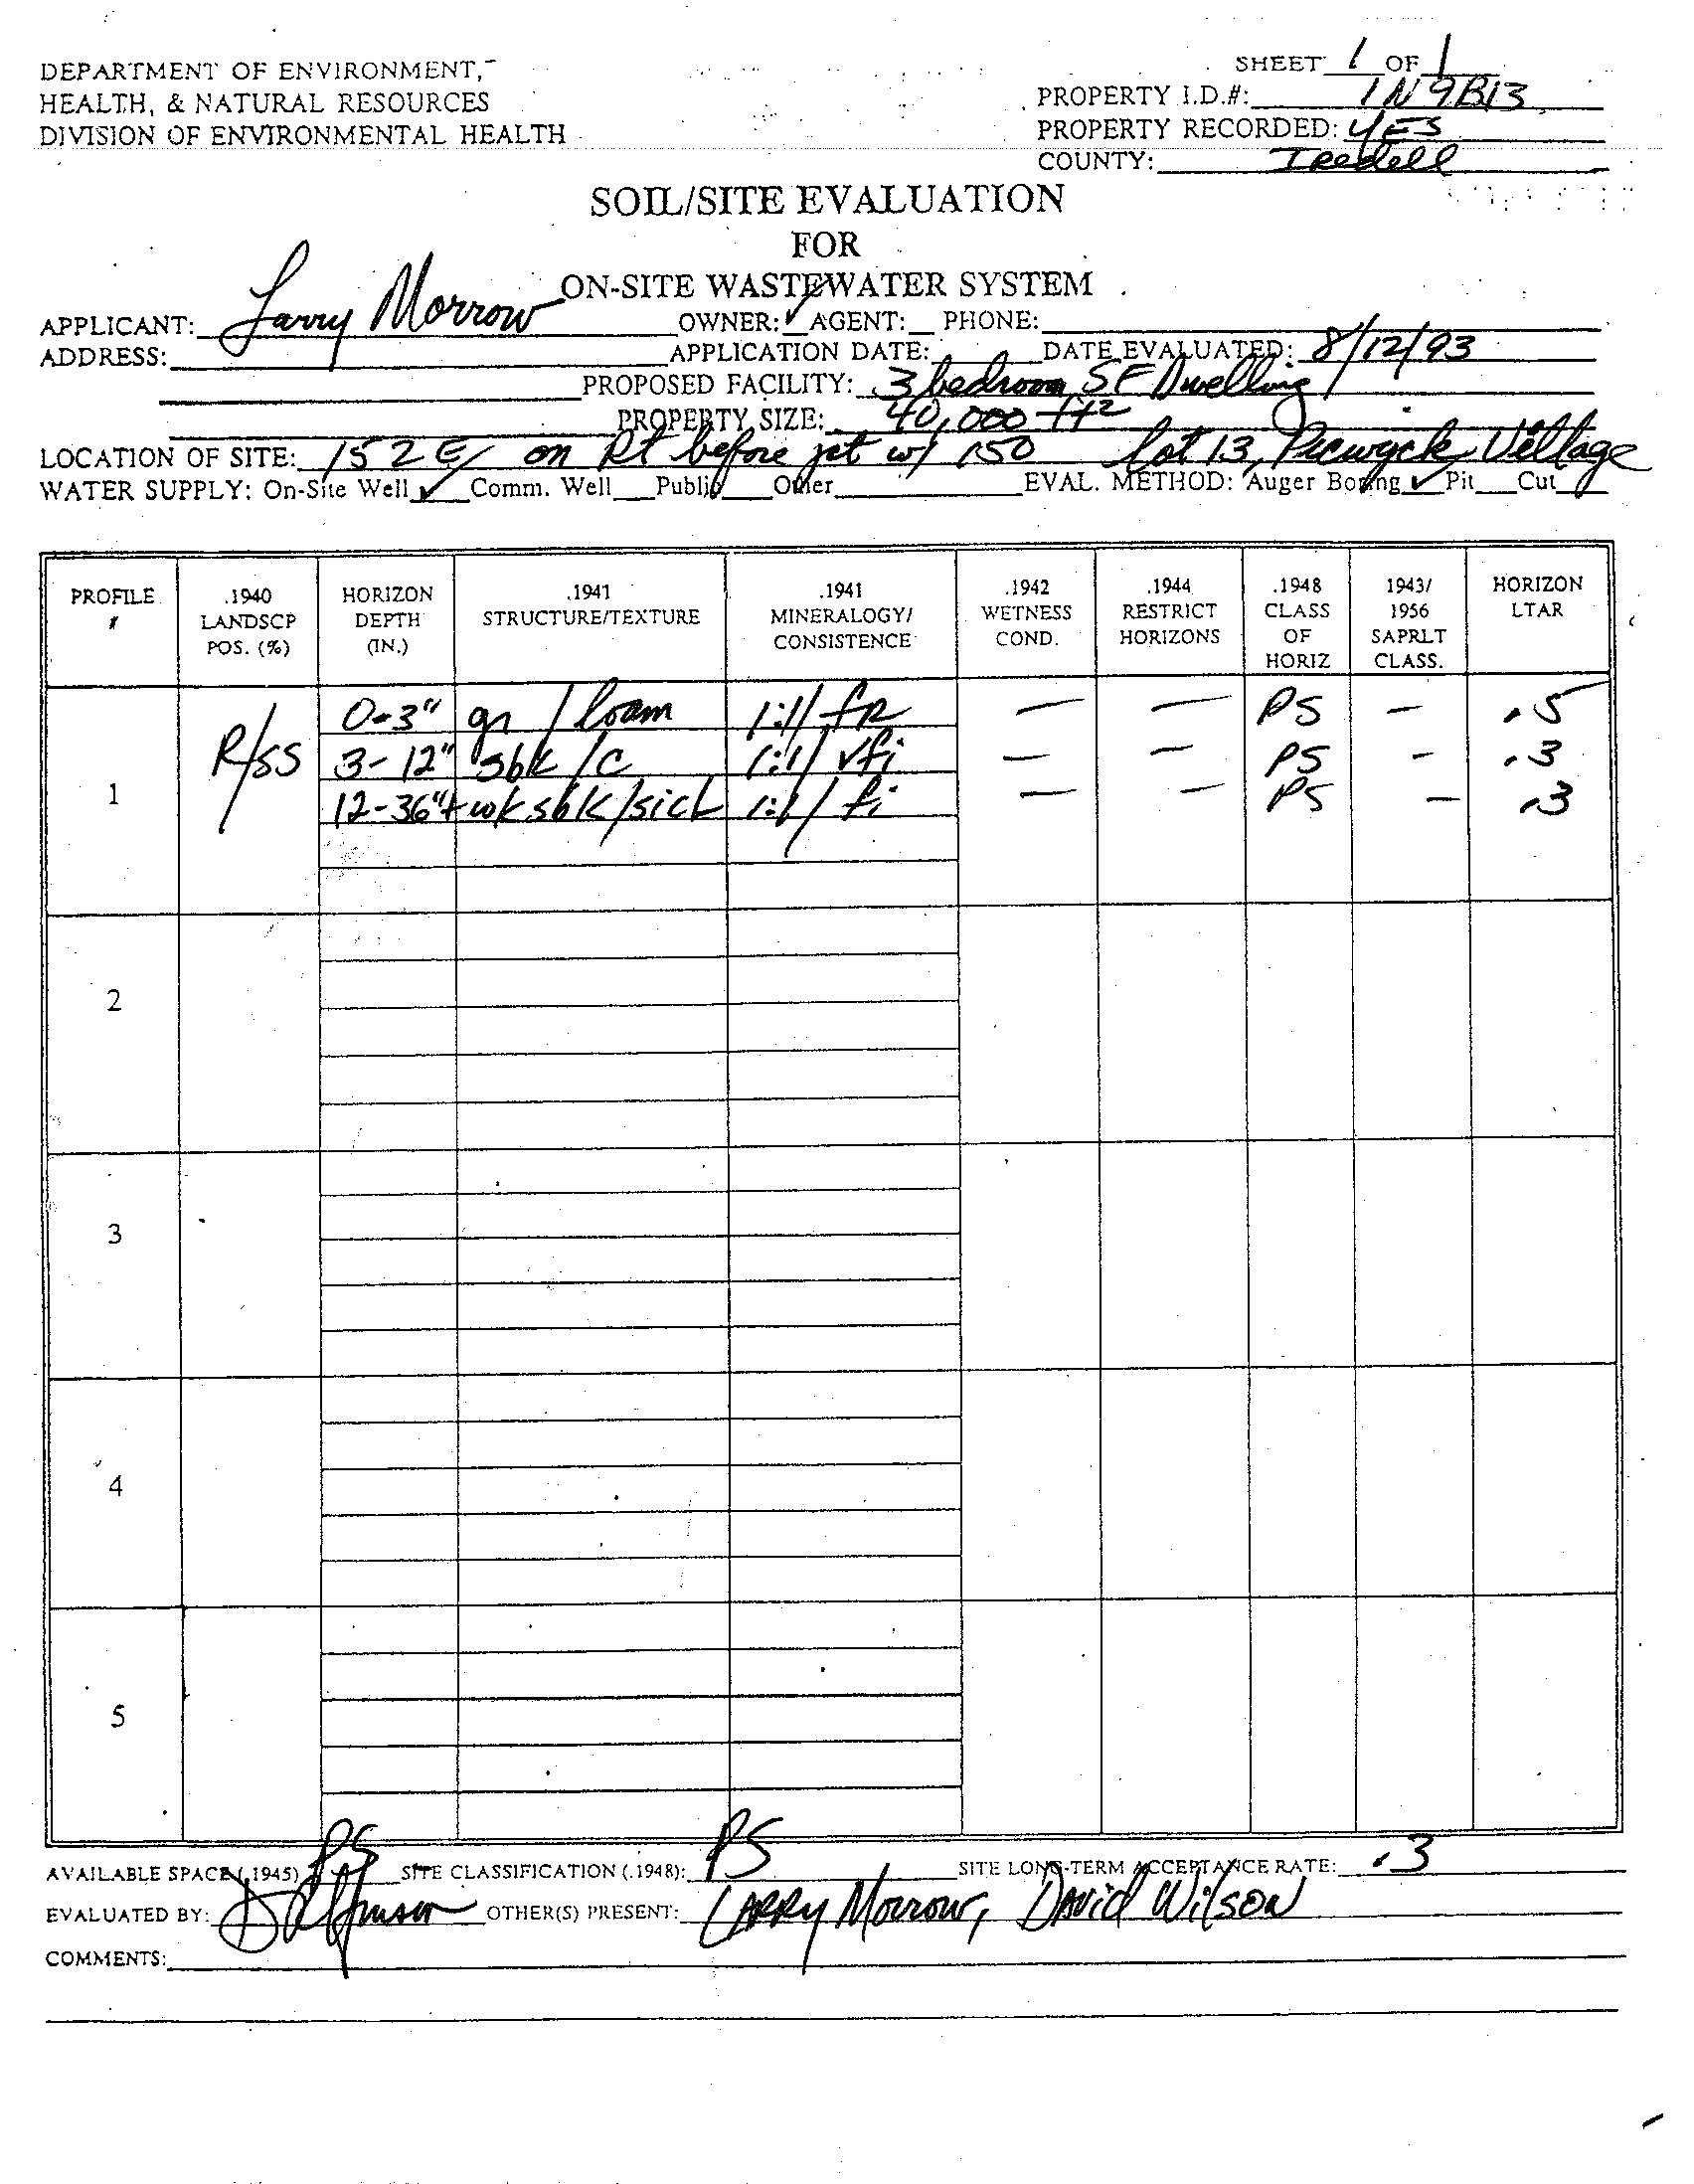 DEPARTMENT OF ENVIRONMENT,
HEALTH, & NATURAL RESOURCES
DIVISION OF ENVIRONMENTAL HEALTH
SHEET 1 OF 1
PROPERTY I.D.#: 1N9B13
PROPERTY RECORDED: YES
COUNTY: Iredell
SOIL/SITE EVALUATION
FOR
ON-SITE WASTEWATER SYSTEM
APPLICANT: Larry Morrow OWNER: ✓ AGENT: PHONE:
ADDRESS: APPLICATION DATE: DATE EVALUATED: 8/12/93
PROPOSED FACILITY: 3 bedroom SF Dwelling
PROPERTY SIZE: 40,000 ft2
LOCATION OF SITE: 152 E on Rt before jct w/ 150 Lot 13, Picwyck Village
WATER SUPPLY: On-Site Well ✓ Comm. Well Public Other EVAL. METHOD: Auger Boring ✓ Pit Cut
PROFILE # .1940 LANDSCP POS. (%) HORIZON DEPTH (IN.) .1941 STRUCTURE/TEXTURE .1941 MINERALOGY/ CONSISTENCE .1942 WETNESS COND. .1944 RESTRICT HORIZONS .1948 CLASS OF HORIZ 1943/ 1956 SAPRLT CLASS. HORIZON LTAR
1 R/SS
0-3" gr / loam 1:1/ fr — — PS — .5
3-12" sbk / c 1:1/ vfi — — PS - .3
12-36"+ wk sbk/sicl 1:1/ fi — — PS — .3
2
3
4
5
AVAILABLE SPACE (.1945) PS SITE CLASSIFICATION (.1948): PS SITE LONG-TERM ACCEPTANCE RATE: .3
EVALUATED BY: OTHER(S) PRESENT: LARRY Morrow, DAVID Wilson
COMMENTS: